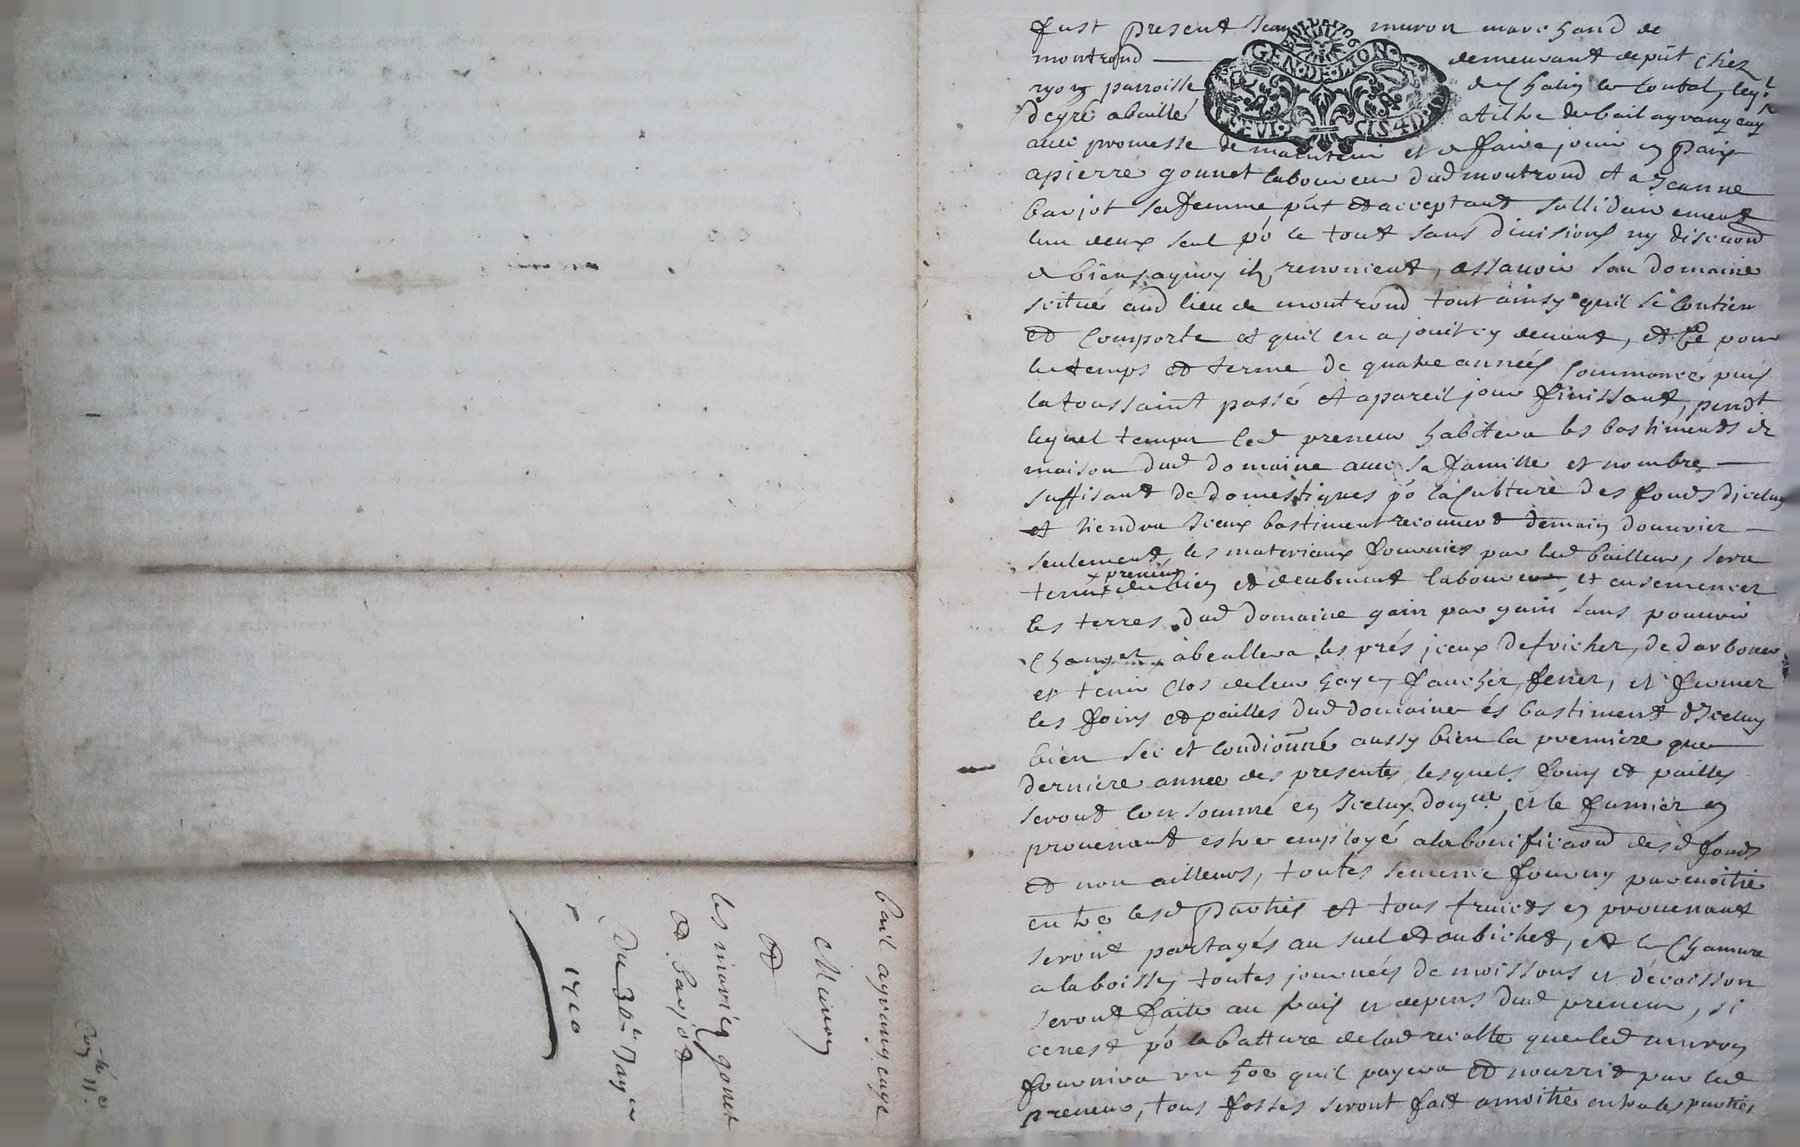 fust present Jean muron marchand de
montrond demeurant de pnt chez
ryon parroisse de Chalin le Contal, leql
degré a baillé a tiltre de bail a grangeage
avec promesse de maintenir et de faire jouir en paix
a pierre gonnet laboureur dud montrond et a Jeanne
barjot sa femme, pnt et acceptant sollidairement
lun deux seul po le tout sans divisions ny discution
de biens a quoy ils renoncient, assavoir son domaine
scitué aud lieu de montrond tout ainsy quil se contien
et comporte et quil en a jouit cy devant, et Ce pour
le temps et terme de quatre années commancé puis
la toussaint passé et a pareil jour finissant, pendt
lequel temps led preneur habitera les bastiments de
maison dud domaine avec sa famille et nombre
suffisant de domestiques po la Culture des fonds dicelluy
et tiendra Iceux bastiment recouvert de main douvrier
seulement, les materiaux fournies par led bailleur, sera
tenu led preneur bien et deubement labourer et ensemencer
les terres dud domaine gain par gain sans pouvoir
Changer, abeallera les prés iceux defricher, dedarboner
et tenir clos de leur haye, faucher, fener, et fermer
les foins et pailles dud domaine és bastiment dIceluy
bien sec et condionné aussy bien la premiere que
derniere annee des presentes, lesquels foins et pailles
seront consommé en Iceluy domne, et le fumier en
provenant estre employé a la bonificaon desd fonds
et non ailleurs, toutes semence fourny par moitié
entre lesd parties et tous fruicts en provenant
seront partagés au suel et au bichet, et le Chanvre
a la boisse, toutes journées de moissons et décoisson
seront faite au frais et depens dud preneur, si
cenest po la batture de lad recolte que led muron
fournira un hoe quil payera et nourrit par led
preneur, tous fosses seront fait a moitié entre les parties
bail a grangeage
Muron
et
les mariés gonet
et barjot
Du 30e May
1706